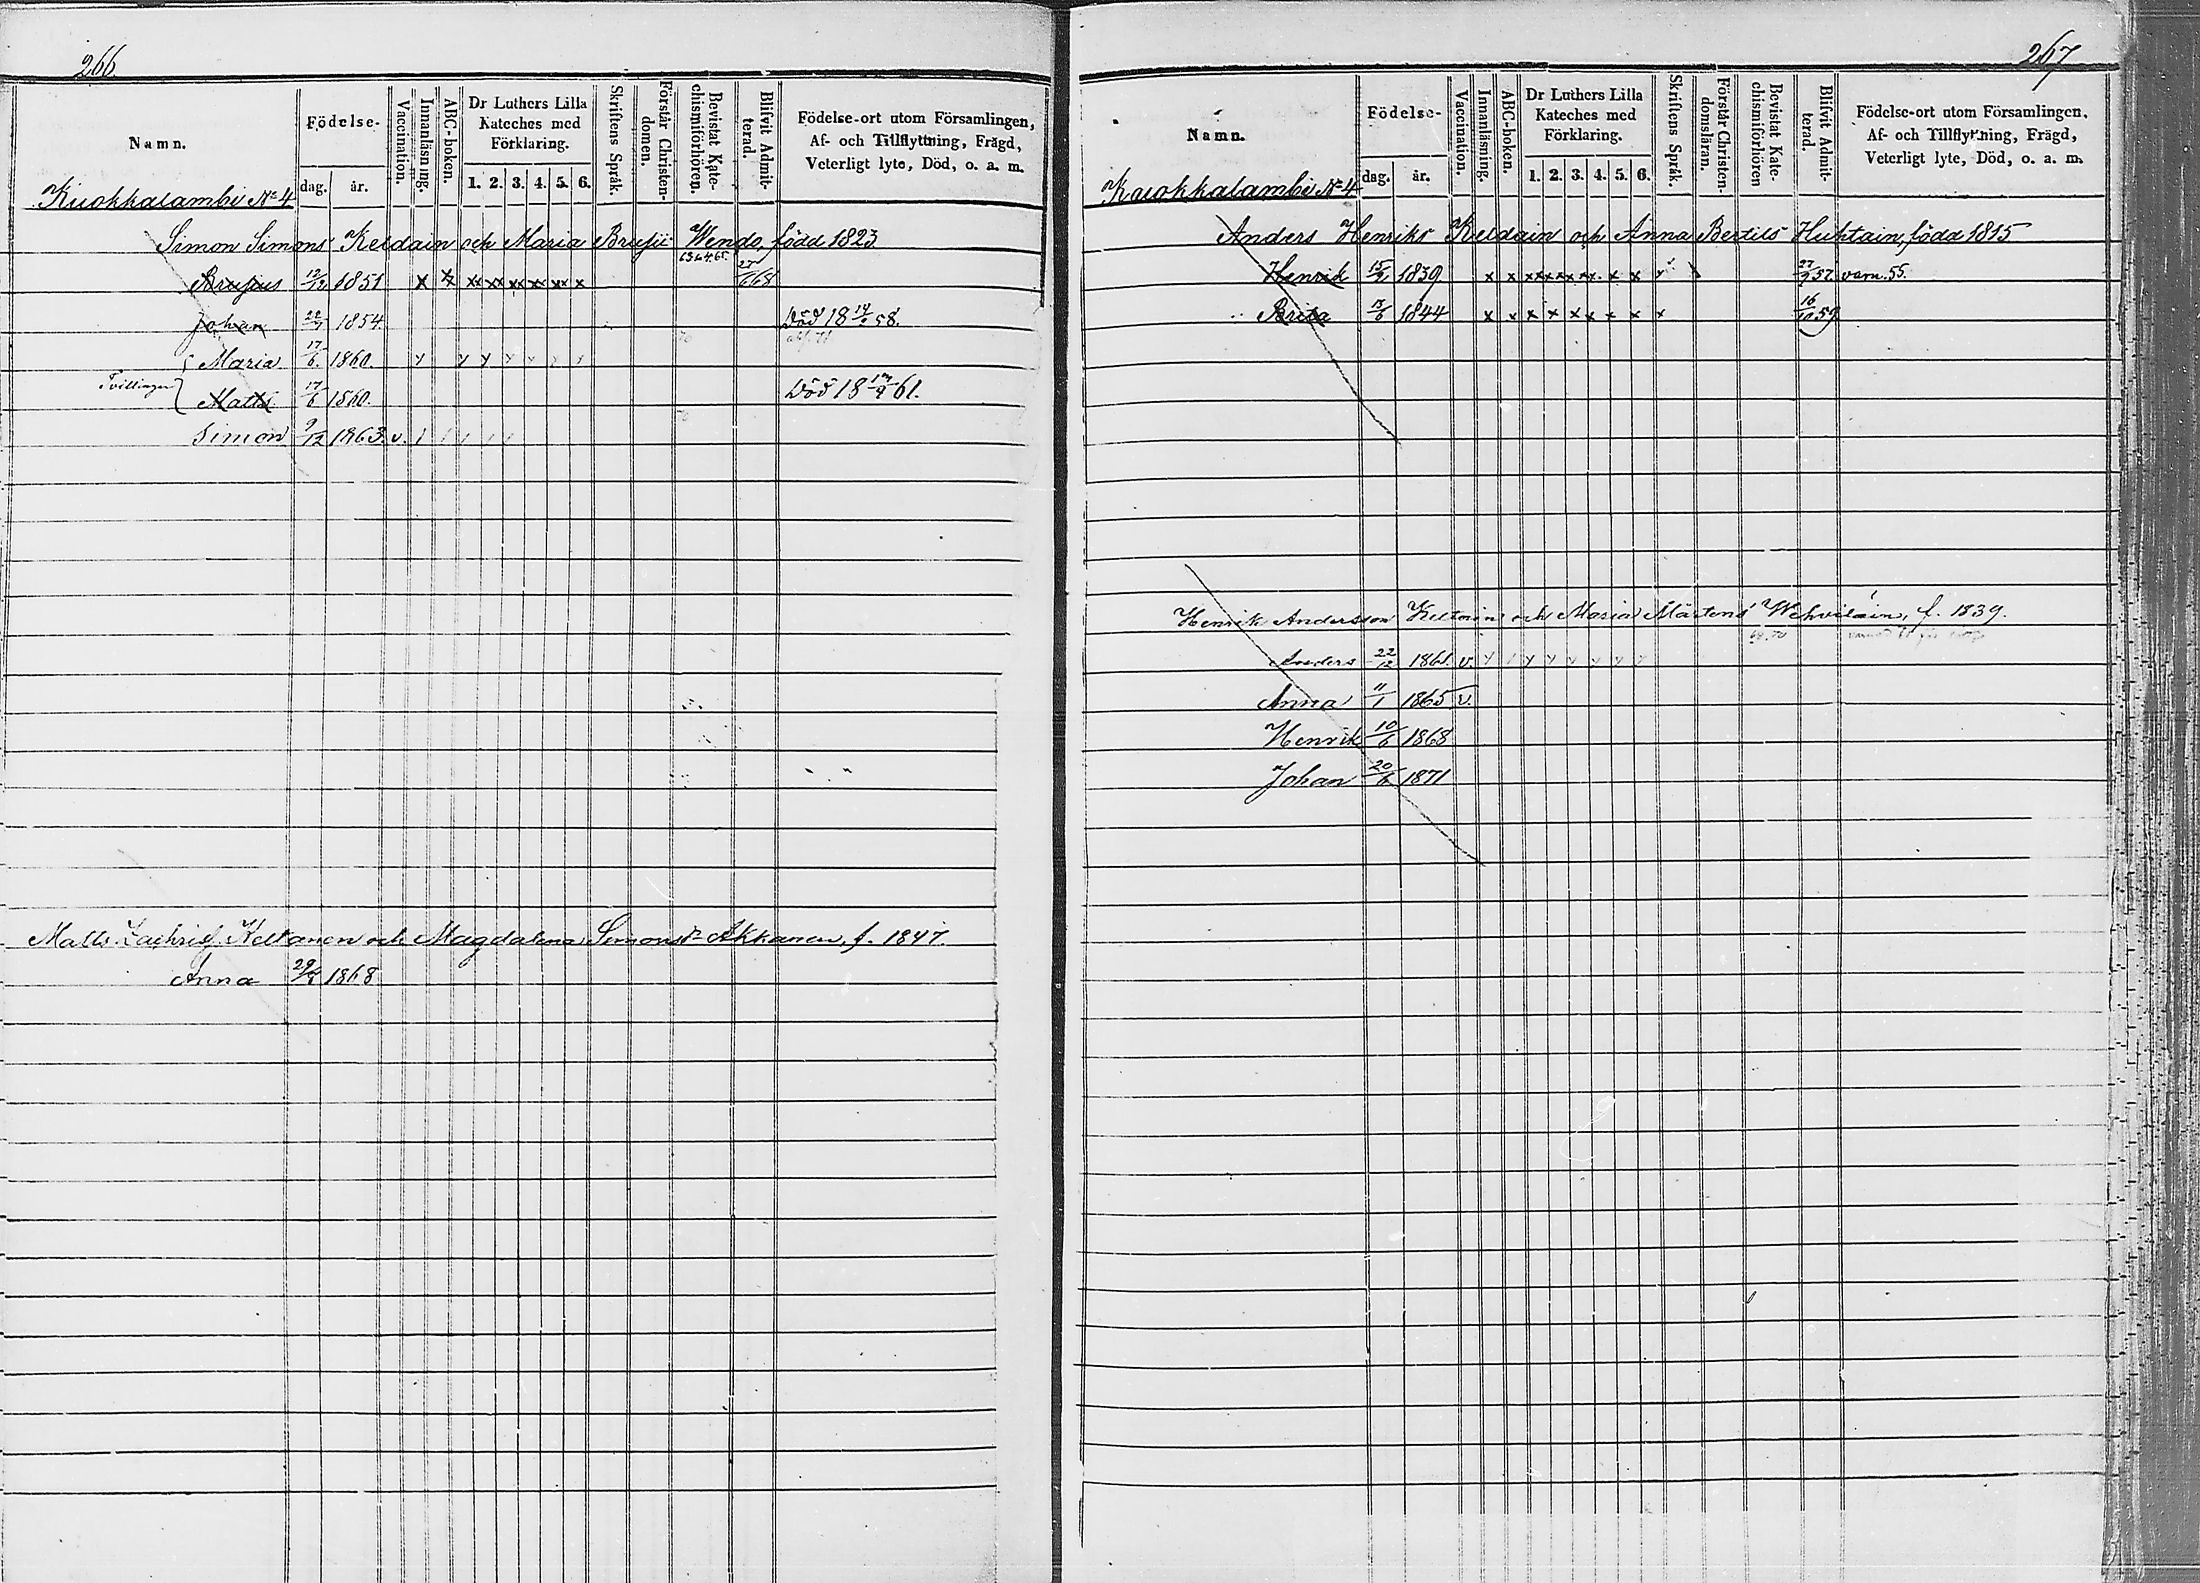 266.
Namn. Födelse- dag. år. Vaccination. Innanläsning. ABC-boken. Dr Luthers Lilla Kateches med Förklaring. 1. 2. 3. 4. 5. 6. Skriftens Språk. Förstår Christendomen. Bevistat Katechismiförhören. Blifvit Admitterad. Födelse-ort utom Församlingen, Af- och Tillflyttning, Frägd, Veterligt lyte, Död, o. a. m.
Kuokkalambi No 4
Simon Simons Keldain och Maria Brusii Wendo, född 1823
63.64.65.
Brusius 12/12 1851 x x xx xx xx xx xx x 27/6 68
Johan 1854. Död 18 58.
Maria 17/6. 1860. y y y y y y y
Tvillingar
Matts 17/6 1860. Död 18 61.
Simon 9/12 1863. v.
Matts Zachrisf. Keltanen och Magdalena Simonsdr Akkanen, f. 1847.
Anna 1868
267
Namn. Födelse- dag. år. Vaccination. Innanläsning. ABC-boken. Dr Luthers Lilla Kateches med Förklaring. 1. 2. 3. 4. 5. 6. Skriftens Språk. Förstår Christendomsläran. Bevistat Katechismiförhören Blifvit Admitterad. Födelse-ort utom Församlingen, Af- och Tillflyttning, Frägd, Veterligt lyte, Död, o. a. m.
Kuokkalambi No 4
Anders Henriks Keldain och Anna Bertils Huhtain, född 1815
Henrik 1839 x x xx xx xx x x 27/9 57. varn. 55.
Brita 1844 x x x x xx x x x 16/10 59
Henrik Andersson Keltain och Maria Mårtens Wehviläin, f. 1839.
69.70
Anders 22/12 1861. v. y y y y y y y
Anna 11/1 1865 v.
Henrik 10/6 1868
Johan 20/6 1871